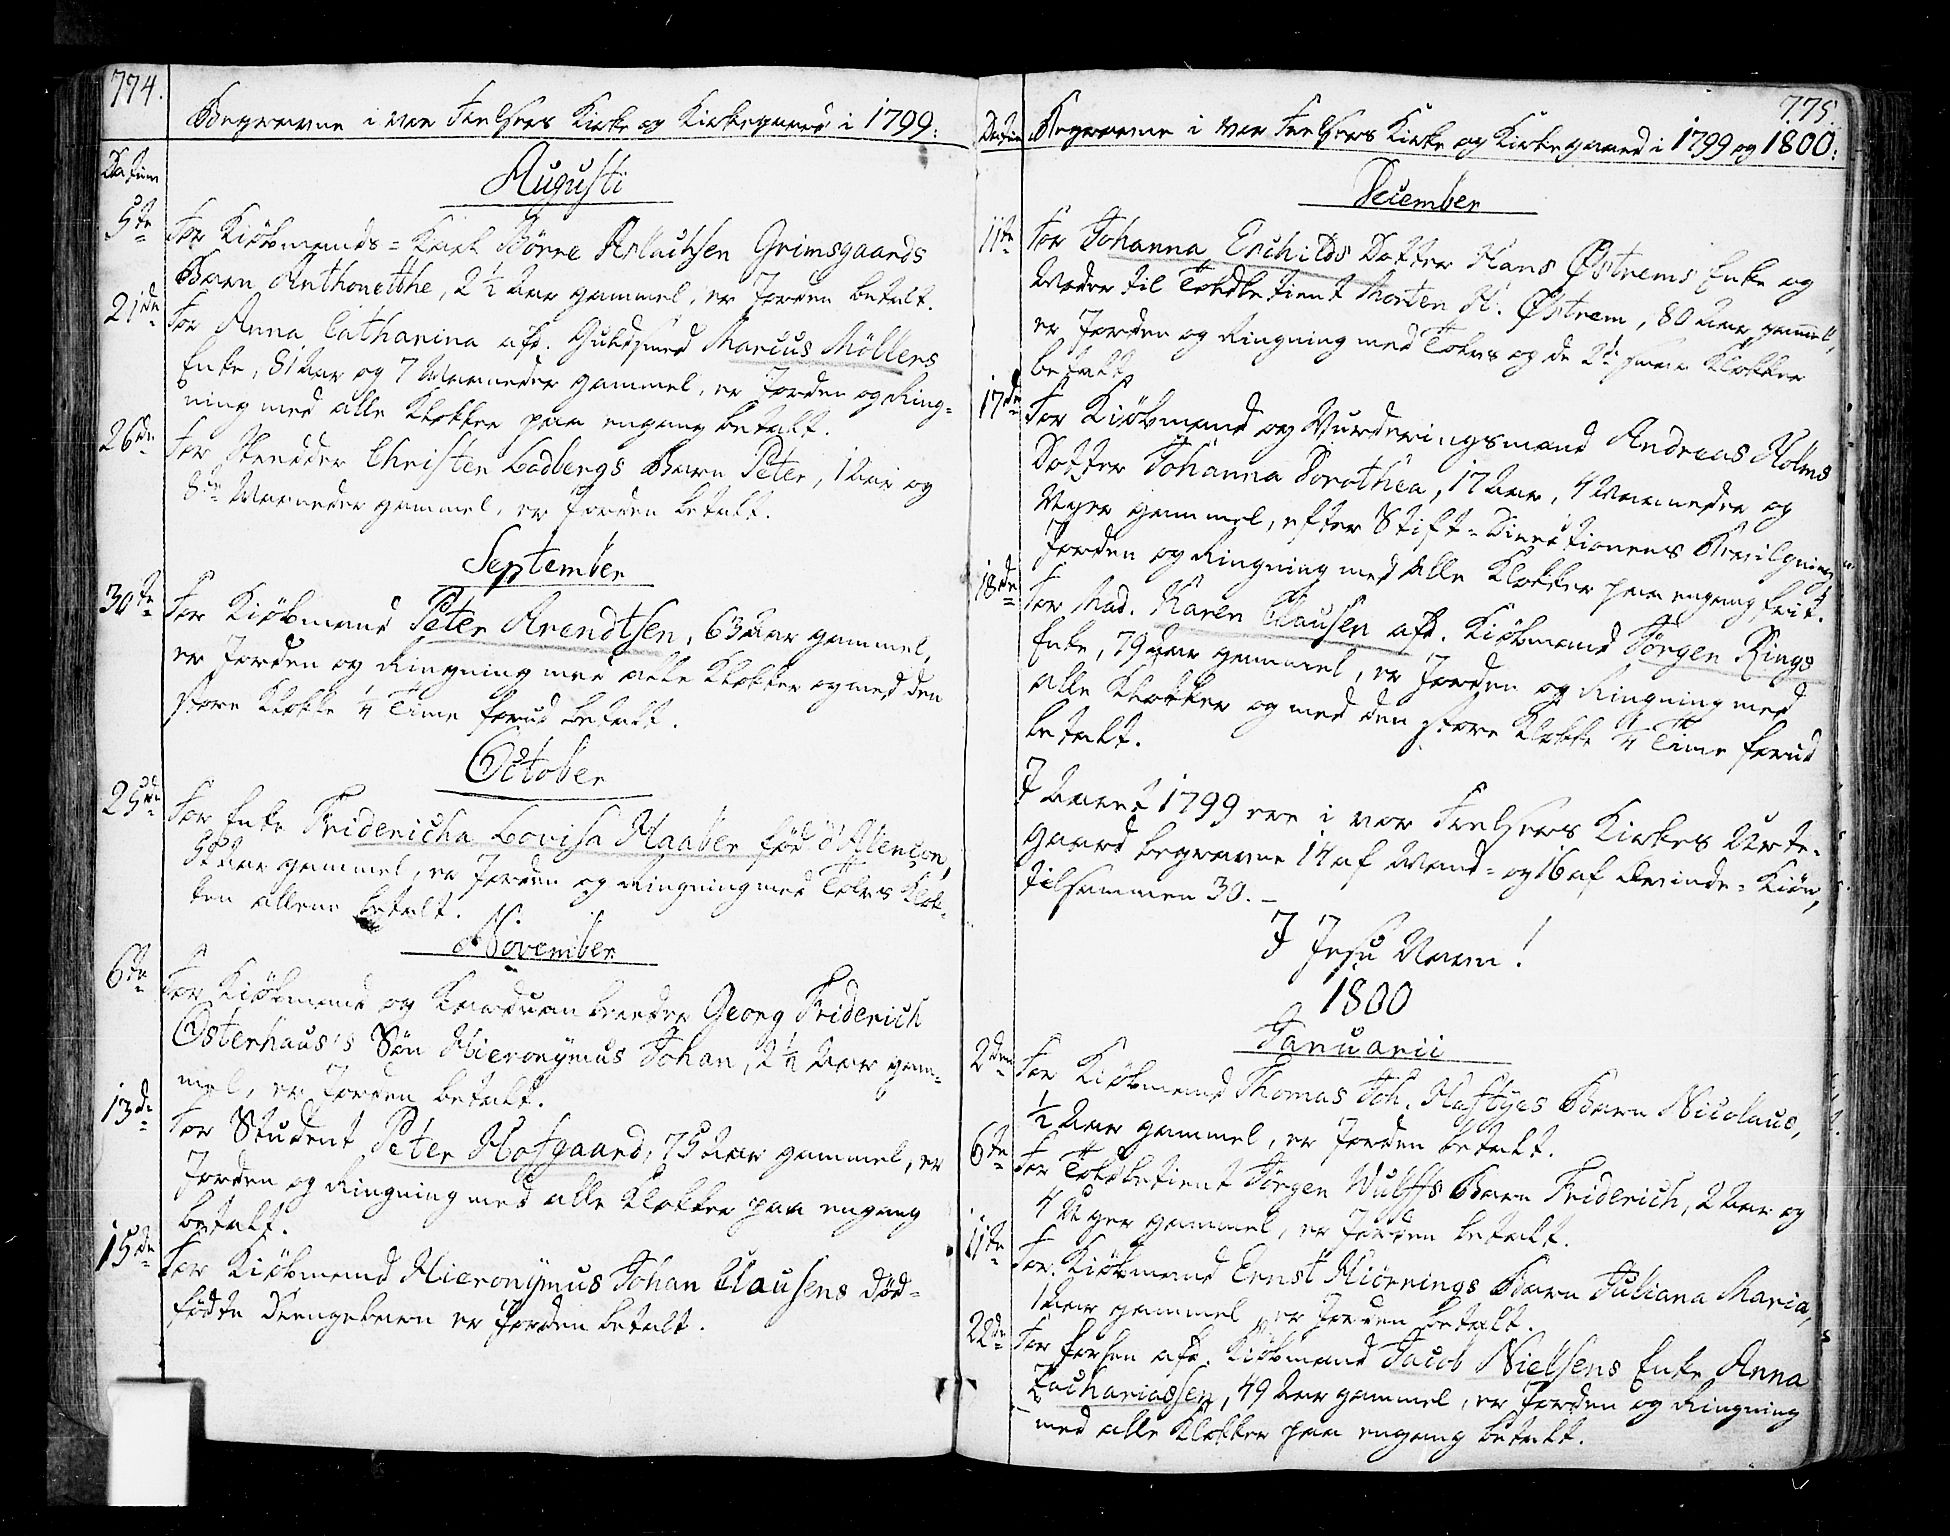 774.
Begravne i vor Frelsers Kirke og Kirkegaard i 1799.
Datum
Augusti
5te For Kiøbmands-Karl Börre Aslachsen Grimsgaards
Barn Anthonetthe, 2 1/2 Aar gammel, er Jorden betalt.
21de For Anna Catharina afd. Guldsmed Marcus Möllers
Enke, 81 Aar og 7 Maaneder gammel, er Jorden og Ring-
ning med alle Klokker paa engang betalt.
26de For Skredder Christen Lodbergs Barn Peter, 1 Aar og
8te Maaneder gammel, er Jorden betalt.
September
30te For Kiøbmand Peter Arendtsen, 63 Aar gammel,
er Jorden og Ringning med alle Klokker og med den
store Klokke 1/4 Time forud betalt.
October
25de For Enke Friderica Lovisa Haaber fød d'Alencon,
Aar gammel, er Jorden og Ringning med Tolvs Klok-
ken allene betalt.
November
6te For Kiøbmand og Karduanbereder Georg Friderich
Osterhaus's Søn Hieronÿmus Johan, 2 1/2 Aar gam-
mel, er Jorden betalt.
13de For Student Peter Hofgaard, 75 Aar gammel, er
Jorden og Ringning med alle Klokker paa engang
betalt.
15de For Kiøbmand Hieronÿmus Johan Clausens død-
fødte Drengebarn er Jorden betalt.
775.
Datum Begravne i vor Frelsers Kirke og Kirkegaard i 1799 og 1800.
December
11te For Johanna Erchilds Datter Hans Østrems Enke og
Moder til Toldbetient Morten H. Østrem, 80 Aar gammel,
er Jorden og Ringning med Tolvs og de 2de smaa Klokker
betalt.
17de For Kiøbmand og Vurderingsmand Andreas Holms
Datter Johanna Dorothea, 17 Aar, 4 Maaneder og
Uger gammel, efter Stift-Directionens Bevilgning
Jorden og Ringning med alle Klokker paa engang frit.
18de For Mad. Karen Clausen afd. Kiøbmand Jörgen Rings
Enke, 79 Aar gammel, er Jorden og Ringning med
alle Klokker og med den store Klokke 1/4 Time forud
betalt.
I Aaret 1799 ere i vor Frelsers Kirkes Urte-
gaard begravne 14 af Mand- og 16 af Qvinde-Kiøn,
tilsammen 30.
I Jesu Navn!
1800
Januarii
2den For Kiøbmand Thomas Joh. Heftÿes Barn Nicolaus,
1/2 Aar gammel, er Jorden betalt.
6te For Toldbetient Jörgen Wulffs Barn Friderich, 2 Aar og
4 Uger gammel, er Jorden betalt.
11te For Kiøbmand Ernst Hiörnings Barn Juliana Maria,
1 Aar gammel, er Jorden betalt.
22de For forhen afd. Kiøbmand Jacob Nielsens Enke Anna
Zachariassen, 49 Aar gammel, er Jorden og Ringning
med alle Klokker paa engang betalt.